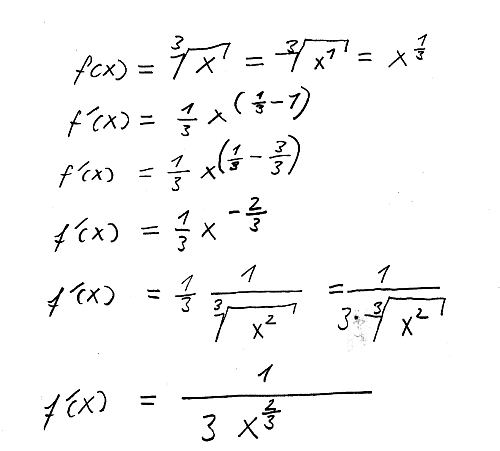 f(x) = ∛x = ∛x¹ = x^(1/3)
f'(x) = 1/3 x^(1/3 − 1)
f'(x) = 1/3 x^(1/3 − 3/3)
f'(x) = 1/3 x^(−2/3)
f'(x) = 1/3 1/∛x² = 1/(3·∛x²)
f'(x) = 1/(3 x^(2/3))